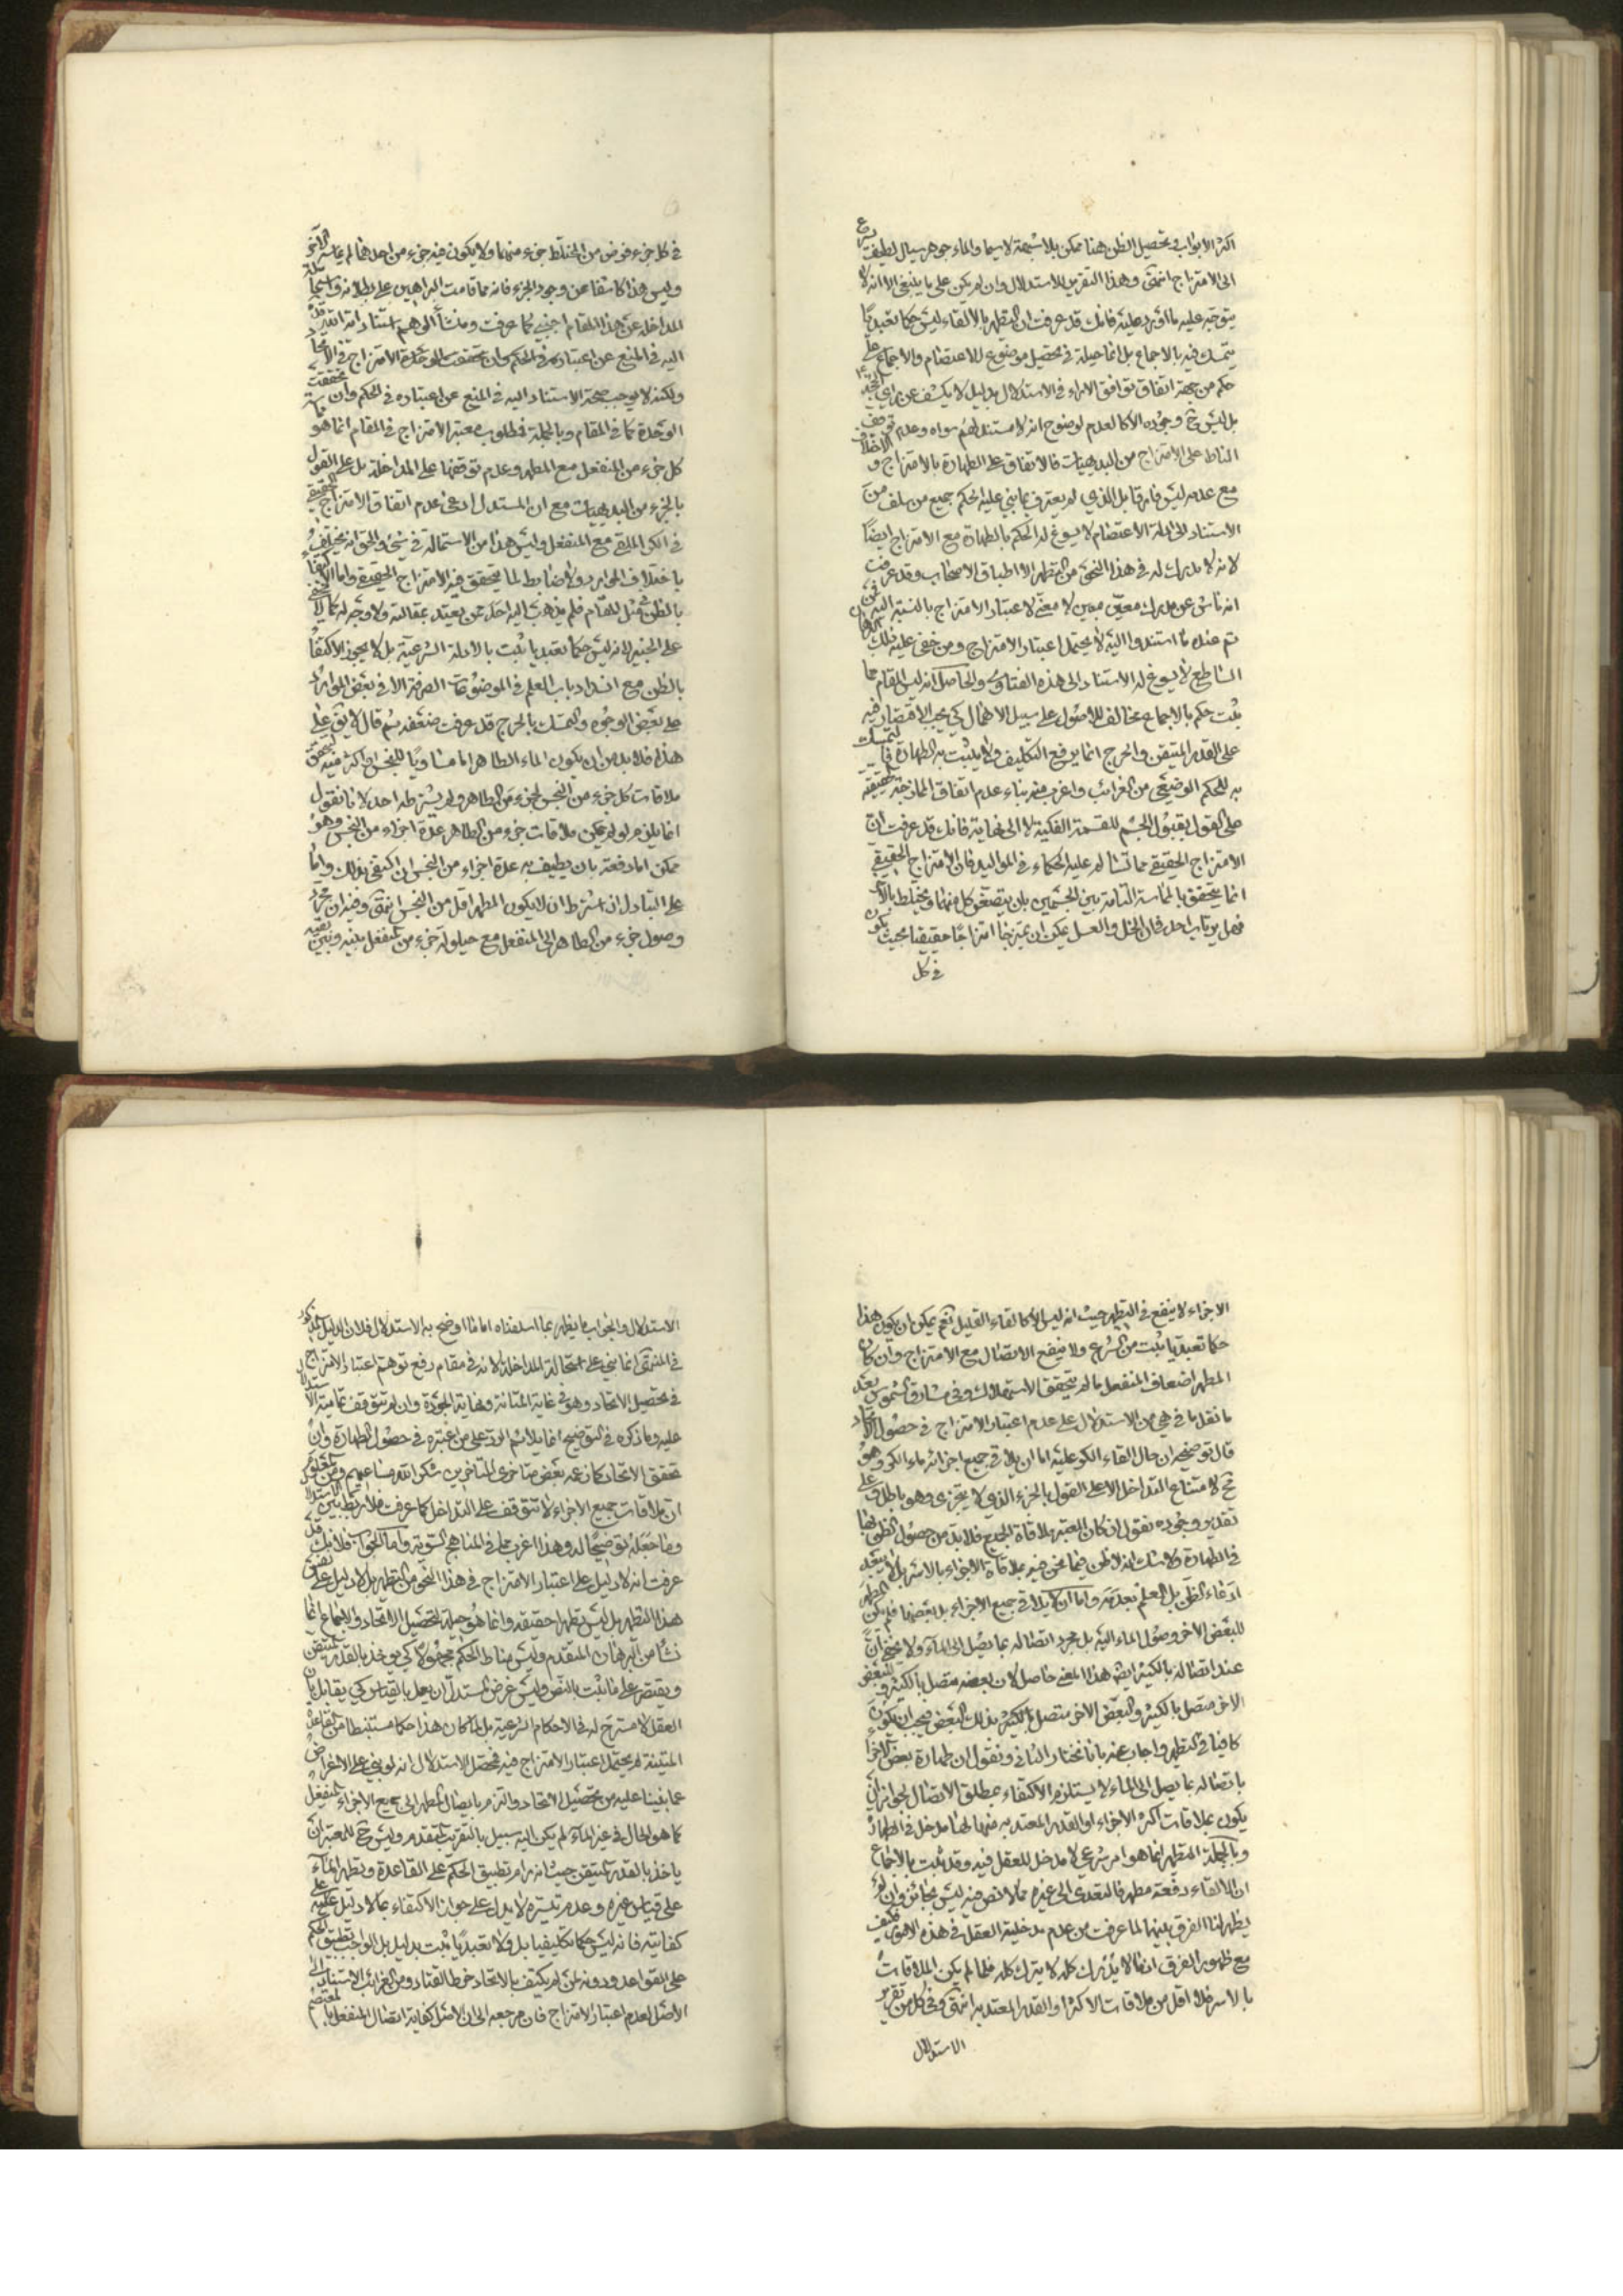 اكثر الابواب وتحصيل الظن هنا ممكن بلا شبهة لا سيما والماء جوهر سيال لطيف
الى الامتزاج انتهى وهذا التقرير للاستدلال وان لم يكن على ما ينبغي الا انه لا
يتوجه عليه ما اورد عليه فانك قد عرفت ان التطهر بالالقاء ليس حكما تعبديا
يتمسك فيه بالاجماع بل انما حيلة في تحصيل موضوع للاعتصام والاجماع على
حكم من جهة اتفاق توافق الاراء في الاستدلال بدليل لا يكشف عن راي الحجة
بل ليس ح وجوده الا كالعدم لوضوح انه لا مستند لهم سواه وعدم توقف
المناط على الامتزاج من البديهيات فالاتفاق على الطهارة بالامتزاج و الاختلاف
مع عدمه ليس فارقا بل الذي لم يعترف بما بني عليه الحكم جميع من سلف من
الاستناد الى ادلة الاعتصام لا يسوغ له الحكم بالطهارة مع الامتزاج ايضا
لانه لا مدرك له في هذا النحو من التطهر الا اطباق الاصحاب وقد عرفت
انه ناش عن مدرك معين مبين لا معنى لاعتبار الامتزاج بالنسبة اليه
ثم عند ما استندوا اليه لا يحتمل اعتبار الامتزاج ومن خفي عليه ذلك
الساطع لا يسوغ له الاستناد الى هذه الفتاوى والحاصل انه ليس المقام مما
يثبت حكم بالاجماع مخالف للاصول على سبيل الاهمال كي يجب الاقتصار فيه
على القدر المتيقن والحرج انما يرفع التكليف ولا يثبت به الطهارة فالتمسك
به للحكم الوضيعي من الغرائب واغرب منه بناء عدم اتفاق الممازجة حقيقة
على القول بقبول الجسم للقسمة الفكية لا الى نهاية فانك قد عرفت ان
الامتزاج الحقيقي مما تسالم عليه الحكماء في المواليد فان الامتزاج الحقيقي
انما يتحقق بالمماسة التامة بين الجسمين بان يتصغر كل منهما ويختلط بالآخر
فهل يرتاب احد فان الخل والعسل يمكن ان يمتزجا امتزاجا حقيقيا بحيث يكون
في كل
في كل جزء فرض من المختلط جزء منهما ولا يكون فيه جزء من احدهما لم يماس الآخر
وليس هذا كاشفا عن وجود الجزء فانه مما قامت البراهين على بطلانه واستحالة
المداخلة عن هذا المقام اجنبي كما عرفت ومنشأ الوهم استناد
اليه في المنع عن اعتباره في الحكم وان تحققت الوحدة الامتزاج في الاتحاد
ولكنه لا يوجب صحة الاستناد اليه في المنع عن اعتباره في الحكم وان تحققت
الوحدة كما في المقام وبالجملة فمطلوب معتبر الامتزاج في المقام انما هو
كل جزء من المنفعل مع المطهر وعدم توقفها على المداخلة بل على القول
بالجزء من البديهيات مع ان المستدل ادعى عدم اتفاق الامتزاج الحقيقي
في الكر الملقى مع المنفعل وليس هذا من الاستحالة في شيء والحق انه يختلف
باختلاف الموارد ولا ضابط لما يتحقق فيه الامتزاج الحقيقي واما الاكتفاء
بالظن في مثل المقام فلم يذهب اليه احد ممن يعتد بمقالته ولا وجه له كما لا يخفى
على الخبير لانه ليس حكما تعبديا يثبت بالادلة الشرعية بل لا يجوز الاكتفاء
بالظن مع انسداد باب العلم في الموضوعات الصرفة الا في بعض الموارد
على بعض الوجوه والتمسك بالحرج قد عرفت ضعفه ثم قال لا يق على
هذا فلا بد من ان يكون الماء الطاهر اما مساويا للنجس او اكثر منه ليتحقق
ملاقات كل جزء من النجس لجزء من الطاهر ولم يشترطه احد لانا نقول
انما يلزم لو لم يمكن ملاقات جزء من الطاهر عدة اجزاء من النجس وهو
ممكن اما دفعة بان يطيف به عدة اجزاء من النجس ان اكتفى بذلك واما
على التبادل ان اشترط ان لا يكون المطهر اقل من النجس انتهى وفيه ان مجرد
وصول جزء من الطاهر الى المنفعل مع حيلولة جزء من المنفعل بينه وبين بقية
الاجزاء لا ينفع في التطهر حيث انه ليس الا كالقاء القليل نعم يمكن ان يكون هذا
حكما تعبديا يثبت من الشرع ولا ينفع الاتصال مع الامتزاج وان كان
المطهر اضعاف المنفعل ما لم يتحقق الاستهلاك وفي مشارق الشموس بعد
ما نقل ما في هي من الاستدلال على عدم اعتبار الامتزاج في حصول الاتحاد
قال توضيحه ان حال القاء الكر عليه اما ان يلاقي جميع اجزائه ماء الكر وهو
مح لامتناع التداخل الا على القول بالجزء الذي لا يتجزى وهو باطل وعلى
تقدير وجوده نقول ان كان المعتبر ملاقاة الجميع فلا بد من حصول الظن بها
في الطهارة ولا شك انه لا ظن فيما نحن فيه بملاقاة الاجزاء بالاسر بل لا يبعد
ادعاء الظن بل العلم بعدمه واما ان لا يلاقي جميع الاجزاء بل بعضها فلم يكن المطهر
للبعض الاخر وصول الماء اليه بل مجرد اتصاله بما يصل الى الماء ولا يخفى ان
عند اتصاله بالكثير ايضا هذا المعنى حاصل لان بعضه متصل بالكثير والبعض
الاخر متصل بالكثير والبعض الاخر متصل بالكثير بذلك البعض فيجب ان يكون
كافيا في التطهر واجاب عنه بانا نختار الثاني ونقول ان طهارة بعض الاجزاء
باتصاله بما يصل الى الماء لا يستلزم الاكتفاء بمطلق الاتصال لجواز ان
يكون بملاقات اكثر الاجزاء او القدر المعتد به منها لها مدخل في الطهارة
وبالجملة التطهر انما هو امر شرعي لا مدخل للعقل فيه وقد ثبت بالاجماع
ان الالقاء دفعة مطهر فالتعدي الى غيره مما لا نص فيه ليس بجائز وان لم
يظهر لنا الفرق بينهما لما عرفت من عدم مدخلية العقل في هذه الامور فكيف
مع ظهور الفرق اذ ما لا يدرك كله لا يترك كله فلما لم يكن الملاقات
بالاسر فلا اقل من ملاقات الاكثر او القدر المعتد به انتهى وفي كل من تقرير
الاستدلال
الاستدلال والجواب ما يظهر بما اسلفناه اما ما اوضح به الاستدلال فلان الدليل المذكور
في المنتهى انما بني على استحالة المداخلة لانه في مقام دفع توهم اعتبار الامتزاج
في تحصيل الاتحاد وهو في غاية المتانة ونهاية الجودة وان لم تتوقف تمامية الاستدلال
عليه وما ذكره في التوضيح انما يلائم الرد على من اعتبره في حصول الطهارة وان
تحقق الاتحاد كما زعمه بعض متاخري المتاخرين شكر الله مساعيهم ومن المعلوم
ان ملاقات جميع الاجزاء لا تتوقف على التداخل كما عرفت فلا ربط بين الاستدلال
وما جعله توضيحا له وهذا اغرب مما في المناهج السوية واما الجواب فلانك قد
عرفت انه لا دليل على اعتبار الامتزاج في هذا النحو من التطهر بل لا دليل على نفس
هذا التطهر بل ليس تطهرا حقيقة وانما هو حيلة لتحصيل الاتحاد والاجماع انما
نشأ من البرهان المتقدم وليس مناط الحكم مجهولا كي يؤخذ بالقدر المتيقن
ويقتصر على ما ثبت بالنص وليس غرض المستدل ان يعمل بالقياس كي يقابل بان
العقل لا مسرح له في الاحكام الشرعية بل لما كان هذا حكما مستنبطا من القاعدة
المتينة لم يحتمل اعتبار الامتزاج فيه فمحصل الاستدلال انه لو بني على الاغماض
عما بنينا عليه من تحصيل الاتحاد والتزم بايصال المطهر الى جميع الاجزاء المنفعل
كما هو الحال في غير الماء لم يكن اليه سبيل بالتقريب المتقدم وليس ح للمعتبر ان
ياخذ بالقدر المتيقن حيث انه رام تطبيق الحكم على القاعدة وتطهر الماء
على قياس غيره وعدم تيسره لا يدل على جواز الاكتفاء بما لا دليل على
كفايته فانه ليس حكما تكليفيا بل ولا تعبديا يثبت بدليل بل الواجب تطبيق الحكم
على القواعد ودونه لمن لم يكتف بالاتحاد خرط القتاد ومن الغرائب الاستناد الى
الاصل لعدم اعتبار الامتزاج فان مرجعه الى ان الاصل كفاية اتصال المنفعل بالمعتصم